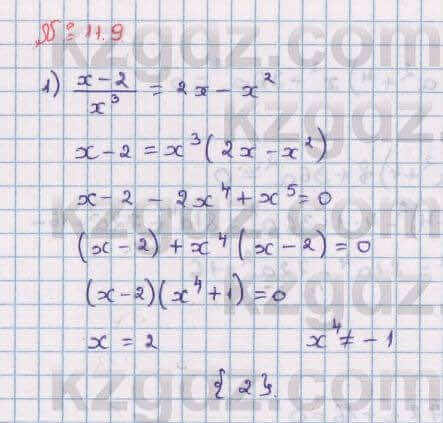 № 11.9
1) \frac{x-2}{x^3} = 2x - x^2
x - 2 = x^3(2x - x^2)
x - 2 - 2x^4 + x^5 = 0
(x - 2) + x^4(x - 2) = 0
(x - 2)(x^4 + 1) = 0
x = 2 x^4 ≠ -1
{2}.
kzgdz.com
kzgdz.com
kzgdz.com
kzgdz.com